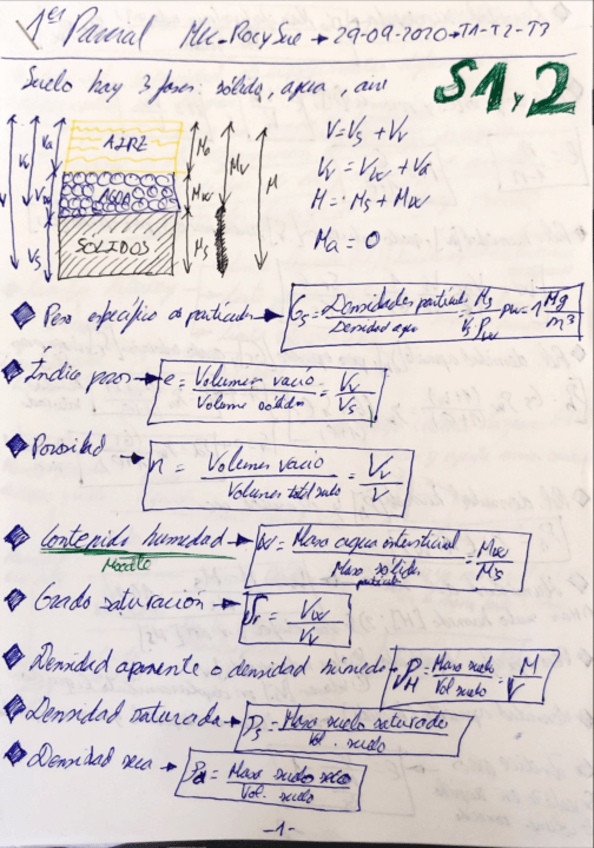 1er Parcial Mec-RocySue → 29-09-2020 → T1-T2-T3
Suelo hay 3 fases: sólido, agua, aire
S1 y 2
AIRE
AGUA
SÓLIDOS
Va
Vv
Vw
Vs
Ma
Mw
Ms
Mv
M
V = Vs + Vv
Vv = Vw + Va
M = Ms + Mw
Ma = 0
Peso específico de partículas → Gs = Densidades partícula / Densidad agua = Ms / Vs ρw ρw = 1 Mg/m³
Índice poros → e = Volumen vacío / Volumen sólido = Vv / Vs
Porosidad → n = Volumen vacío / Volumen total suelo = Vv / V
Contenido humedad → w = Masa agua intersticial / Masa sólida partículas = Mw / Ms
Grado saturación → Sr = Vw / Vv
Densidad aparente o densidad húmeda → ρH = Masa suelo / Vol suelo = M / V
Densidad saturada → ρs = Masa suelo saturado / Vol. suelo
Densidad seca → ρd = Masa suelo seco / Vol. suelo
-1-